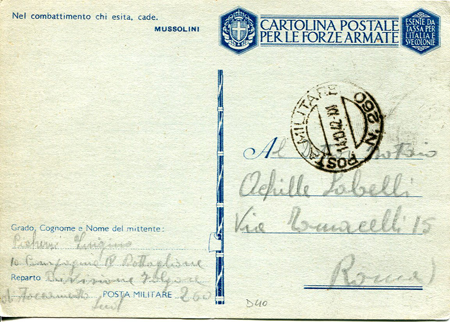 Nel combattimento chi esita, cade.
MUSSOLINI
CARTOLINA POSTALE
PER LE FORZE ARMATE
ESENTE DA
TASSA PER
L'ITALIA E
SUE COLONIE
POSTA MILITARE N. 260
14.10.42.XX
Al
Achille Lobelli
Via Tomacelli 15
Roma
Grado, Cognome e Nome del mittente:
Luigino
10 Compagnia Battaglione
Reparto Divisione Folgore
POSTA MILITARE 260
D40